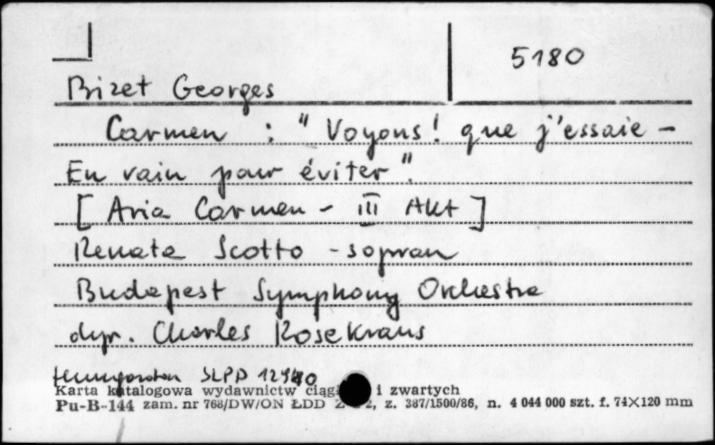 5180
Bizet Georges
Carmen : "Voyons! que j'essaie -
En vain pour éviter".
[Aria Carmen - III Akt]
Renata Scotto - sopran
Budapest Symphony Orchestra
dyr. Charles Rosekrans
Hungaroton SLPD
Karta katalogowa wydawnictw i zwartych
Pu-B-144 zam. nr 768/DW/ON ŁDD z. 387/1500/86, n. 4 044 000 szt. f. 74×120 mm